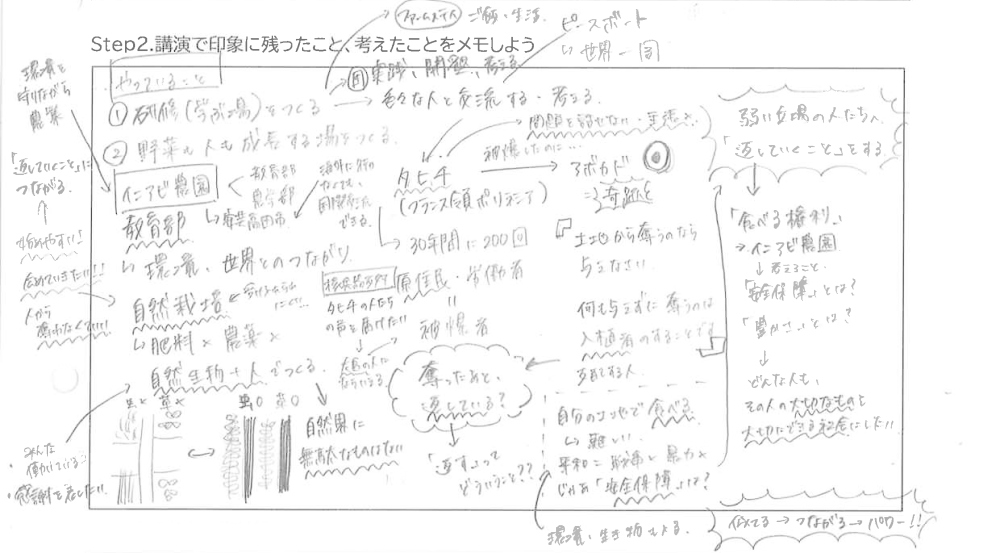 ファームステイ
ご飯・生活。
ピースボート
↳ 世界一周
Step2.講演で印象に残ったこと、考えたことをメモしよう
やっていること
① 研修(学ぶ場)をつくる
実践、開墾、考える
→ 色々な人と交流する・考える。
② 野菜も人も成長する場をつくる
環境を
守りながら
農業
「返していくこと」に
つながる。
イニアビ農園
教育部
農学部
↳ 安芸高田市
海外に行か
なくても、
国際交流
できる。
教育部
↳ 環境、世界とのつながり
自然栽培
↳ 肥料× 農薬×
自然生物+人でつくる。
虫× 草×
虫○ 草○
自然界に
無駄なものはない
人から
みんな
・働いている
・感謝を
問題を
被爆したのに…
タヒチ
(フランス領ポリネシア)
→ アボカド
奇跡
→ 30年間に200回
核実験
タヒチの人たち
の声を届けたい
原住民・労働者
〃
被爆者
広島の人に
奪ったあと、
返している?
「返す」って
どういうこと??
土地から奪うのなら
与えなさい
何も与えずに奪うのは
入植者のすることです
支配する人。
自分の土地で食べる
↳ 難しい。
平和=
暴力×
じゃあ「安全保障」とは?
環境、生き物
弱い立場の人たちへ
「返していくこと」をする。
「食べる権利」
→ イニアビ農園
↓ 考えること。
「安全保障」とは?
「豊かさ」とは?
↓
どんな人も、
その人の大切なものを
大切にできる社会にしたい
似てる → つながる → パワー!!